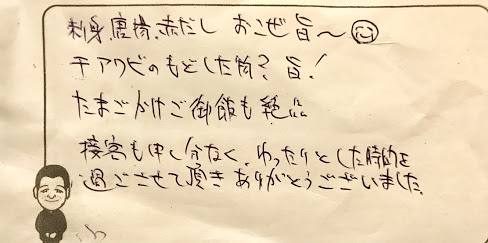 刺身、唐揚、赤だし おこぜ 旨〜
干アワビのもどした物？旨！
たまごかけご御飯も絶品
接客も申し分なく、ゆったりとした時間を
過ごさせて頂きありがとうございました。